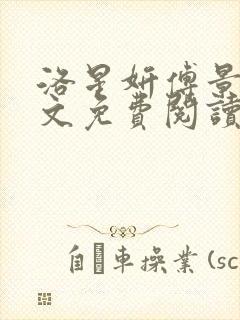 洛星妍傅景
文免費閱讀
自車操業(sc